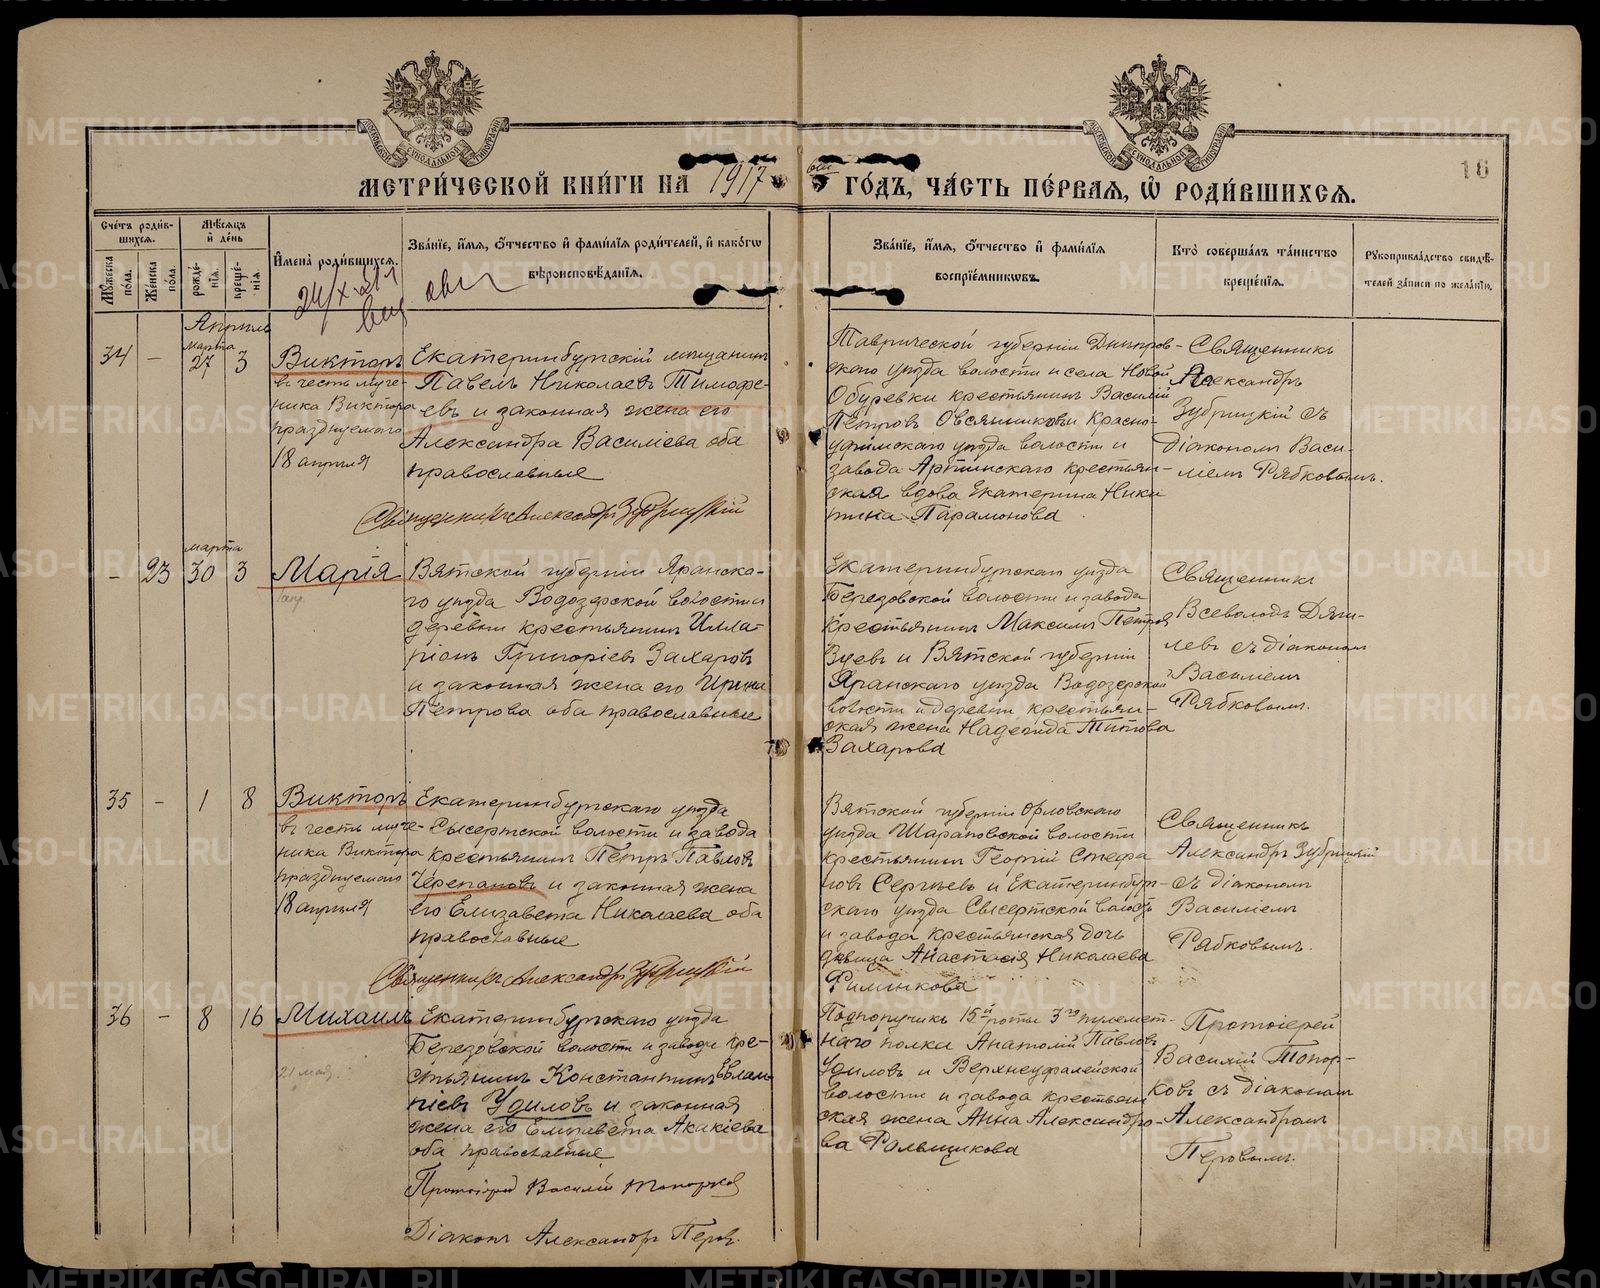 МЕТРИ́ЧЕСКОЙ КНИ́ГИ НА 1917 ГО́ДЪ, ЧА́СТЬ ПЕ́РВАЯ, Ѡ҆ РОДИ́ВШИХСЯ.
16
МОСКОВСКОЙ СѴНОДАЛЬНОЙ ТИПОГРАФІИ
МОСКОВСКОЙ СѴНОДАЛЬНОЙ ТИПОГРАФІИ
Сче́тъ роди́в-
шихся.
Му́жеска по́ла.
Же́нска по́ла.
Мѣ́сяцъ
и҆ де́нь
рожде́-
нїя.
креще́-
нїя.
И҆мена̀ роди́вшихся.
Зва́нїе, и҆́мя, ѻ҆́тчество и҆ фами́лїя роди́телей, и҆ како́гѡ
вѣроисповѣ́данїя.
Зва́нїе, и҆́мя, ѻ҆́тчество и҆ фами́лїя
воспрїе́мникѡвъ.
Кто̀ соверша́лъ та́инство
креще́нїя.
Рꙋкоприкла́дство свидѣ́-
телей за́писи по жела́нїю.
24/X
Апрѣль
34
-
марта
27
3
Викторъ
въ честь муче-
ника Виктора
празднуемаго
18 апрѣля
Екатеринбургскій мѣщанинъ
Павелъ Николаевъ Тимофе-
евъ и законная жена его
Александра Васильева оба
православные
Священникъ Александръ Зубрицкій
Таврической губерніи Днѣпров-
скаго уѣзда волости и села Новой
Обуревки крестьянинъ Василій
Петровъ Овсянниковъ и Красно-
уфимскаго уѣзда волости и
завода Артинскаго крестьян-
ская вдова Екатерина Ники
тина Парамонова
Священникъ
Александръ
Зубрицкій съ
діакономъ Васи-
ліемъ Рябковымъ.
-
23
марта
30
3
Марія
Вятской губерніи Яранска-
го уѣзда Водозерской волости
деревни крестьянинъ Илла-
ріонъ Григоріевъ Захаровъ
и законная жена его Ирина
Петрова оба православные
Екатеринбургскаго уѣзда
Березовской волости и завода
крестьянинъ Максимъ Петровъ
Зуевъ и Вятской губерніи
Яранскаго уѣзда Водозерской
волости и деревни крестьян-
ская жена Надежда Титова
Захарова
Священникъ
Всеволодъ Дяги-
левъ съ діакономъ
Василіемъ
Рябковымъ.
35
-
1
8
Викторъ
въ честь муче-
ника Виктора
празднуемаго
18 апрѣля
Екатеринбургскаго уѣзда
Сысертской волости и завода
крестьянинъ Петръ Павловъ
Черепановъ и законная жена
его Елизавета Николаева оба
православные
Священникъ Александръ Зубрицкій
Вятской губерніи Орловскаго
уѣзда Шараповской волости
крестьянинъ Георгій Стефа
новъ Сергѣевъ и Екатеринбург-
скаго уѣзда Сысертской волости
и завода крестьянская дочь
дѣвица Анастасія Николаева
Филинкова
Священникъ
Александръ Зубрицкій
съ діакономъ
Василіемъ
Рябковымъ.
36
-
8
16
Михаилъ
21 мая.
Екатеринбургскаго уѣзда
Березовской волости и завода кре-
стьянинъ Константинъ Евлам-
піевъ Удиловъ и законная
жена его Елизавета Акакіева
оба православные
Протоіерей Василій Топорковъ
Діаконъ Александръ Перовъ.
Подпоручикъ 15й роты 3го пулемет-
наго полка Анатолій Павловъ
Удиловъ и Верхнеуфалейской
волости и завода крестьян
ская жена Анна Александро-
ва Фальщикова
Протоіерей
Василій Топор-
ковъ съ діакономъ
Александромъ
Перовымъ.
METRIKI.GASO-URAL.RU